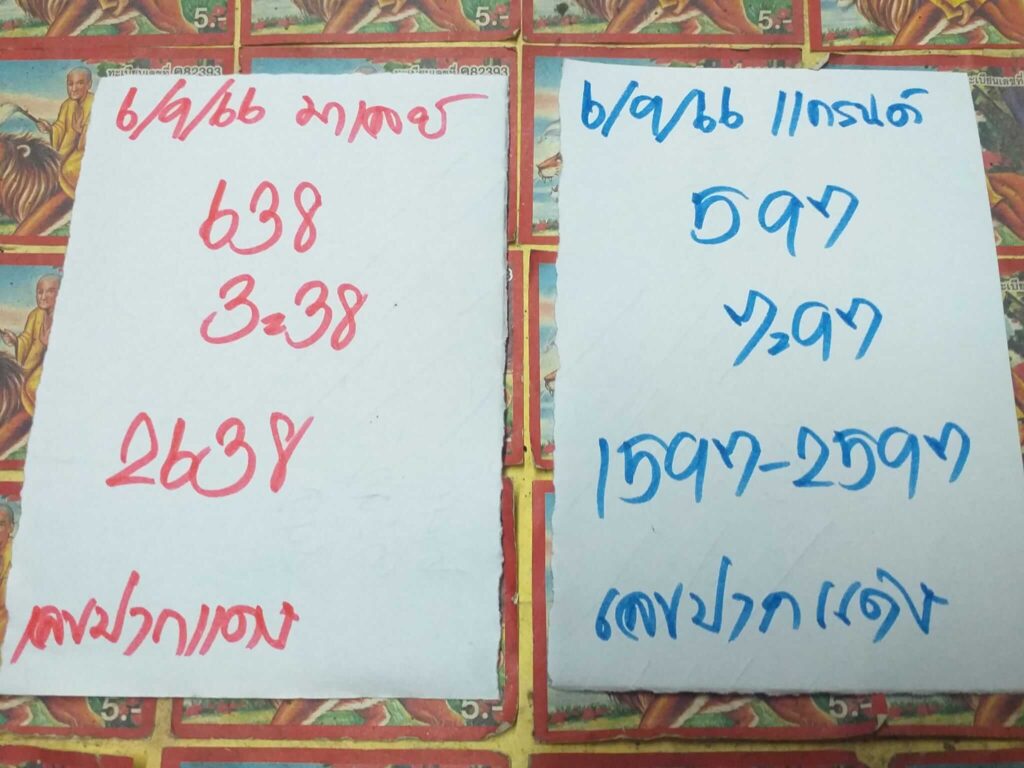 5.-
5.-
ทะเบียนเลขที่ ค82393
ทะเบียนเลขที่ ค82393
6/9/66 มาเลย์
638
3=38
2638
เลขปากแดง
6/9/66 แกรนด์
597
7=97
1597-2597
เลขปากแดง
5.-
5.-
5.-